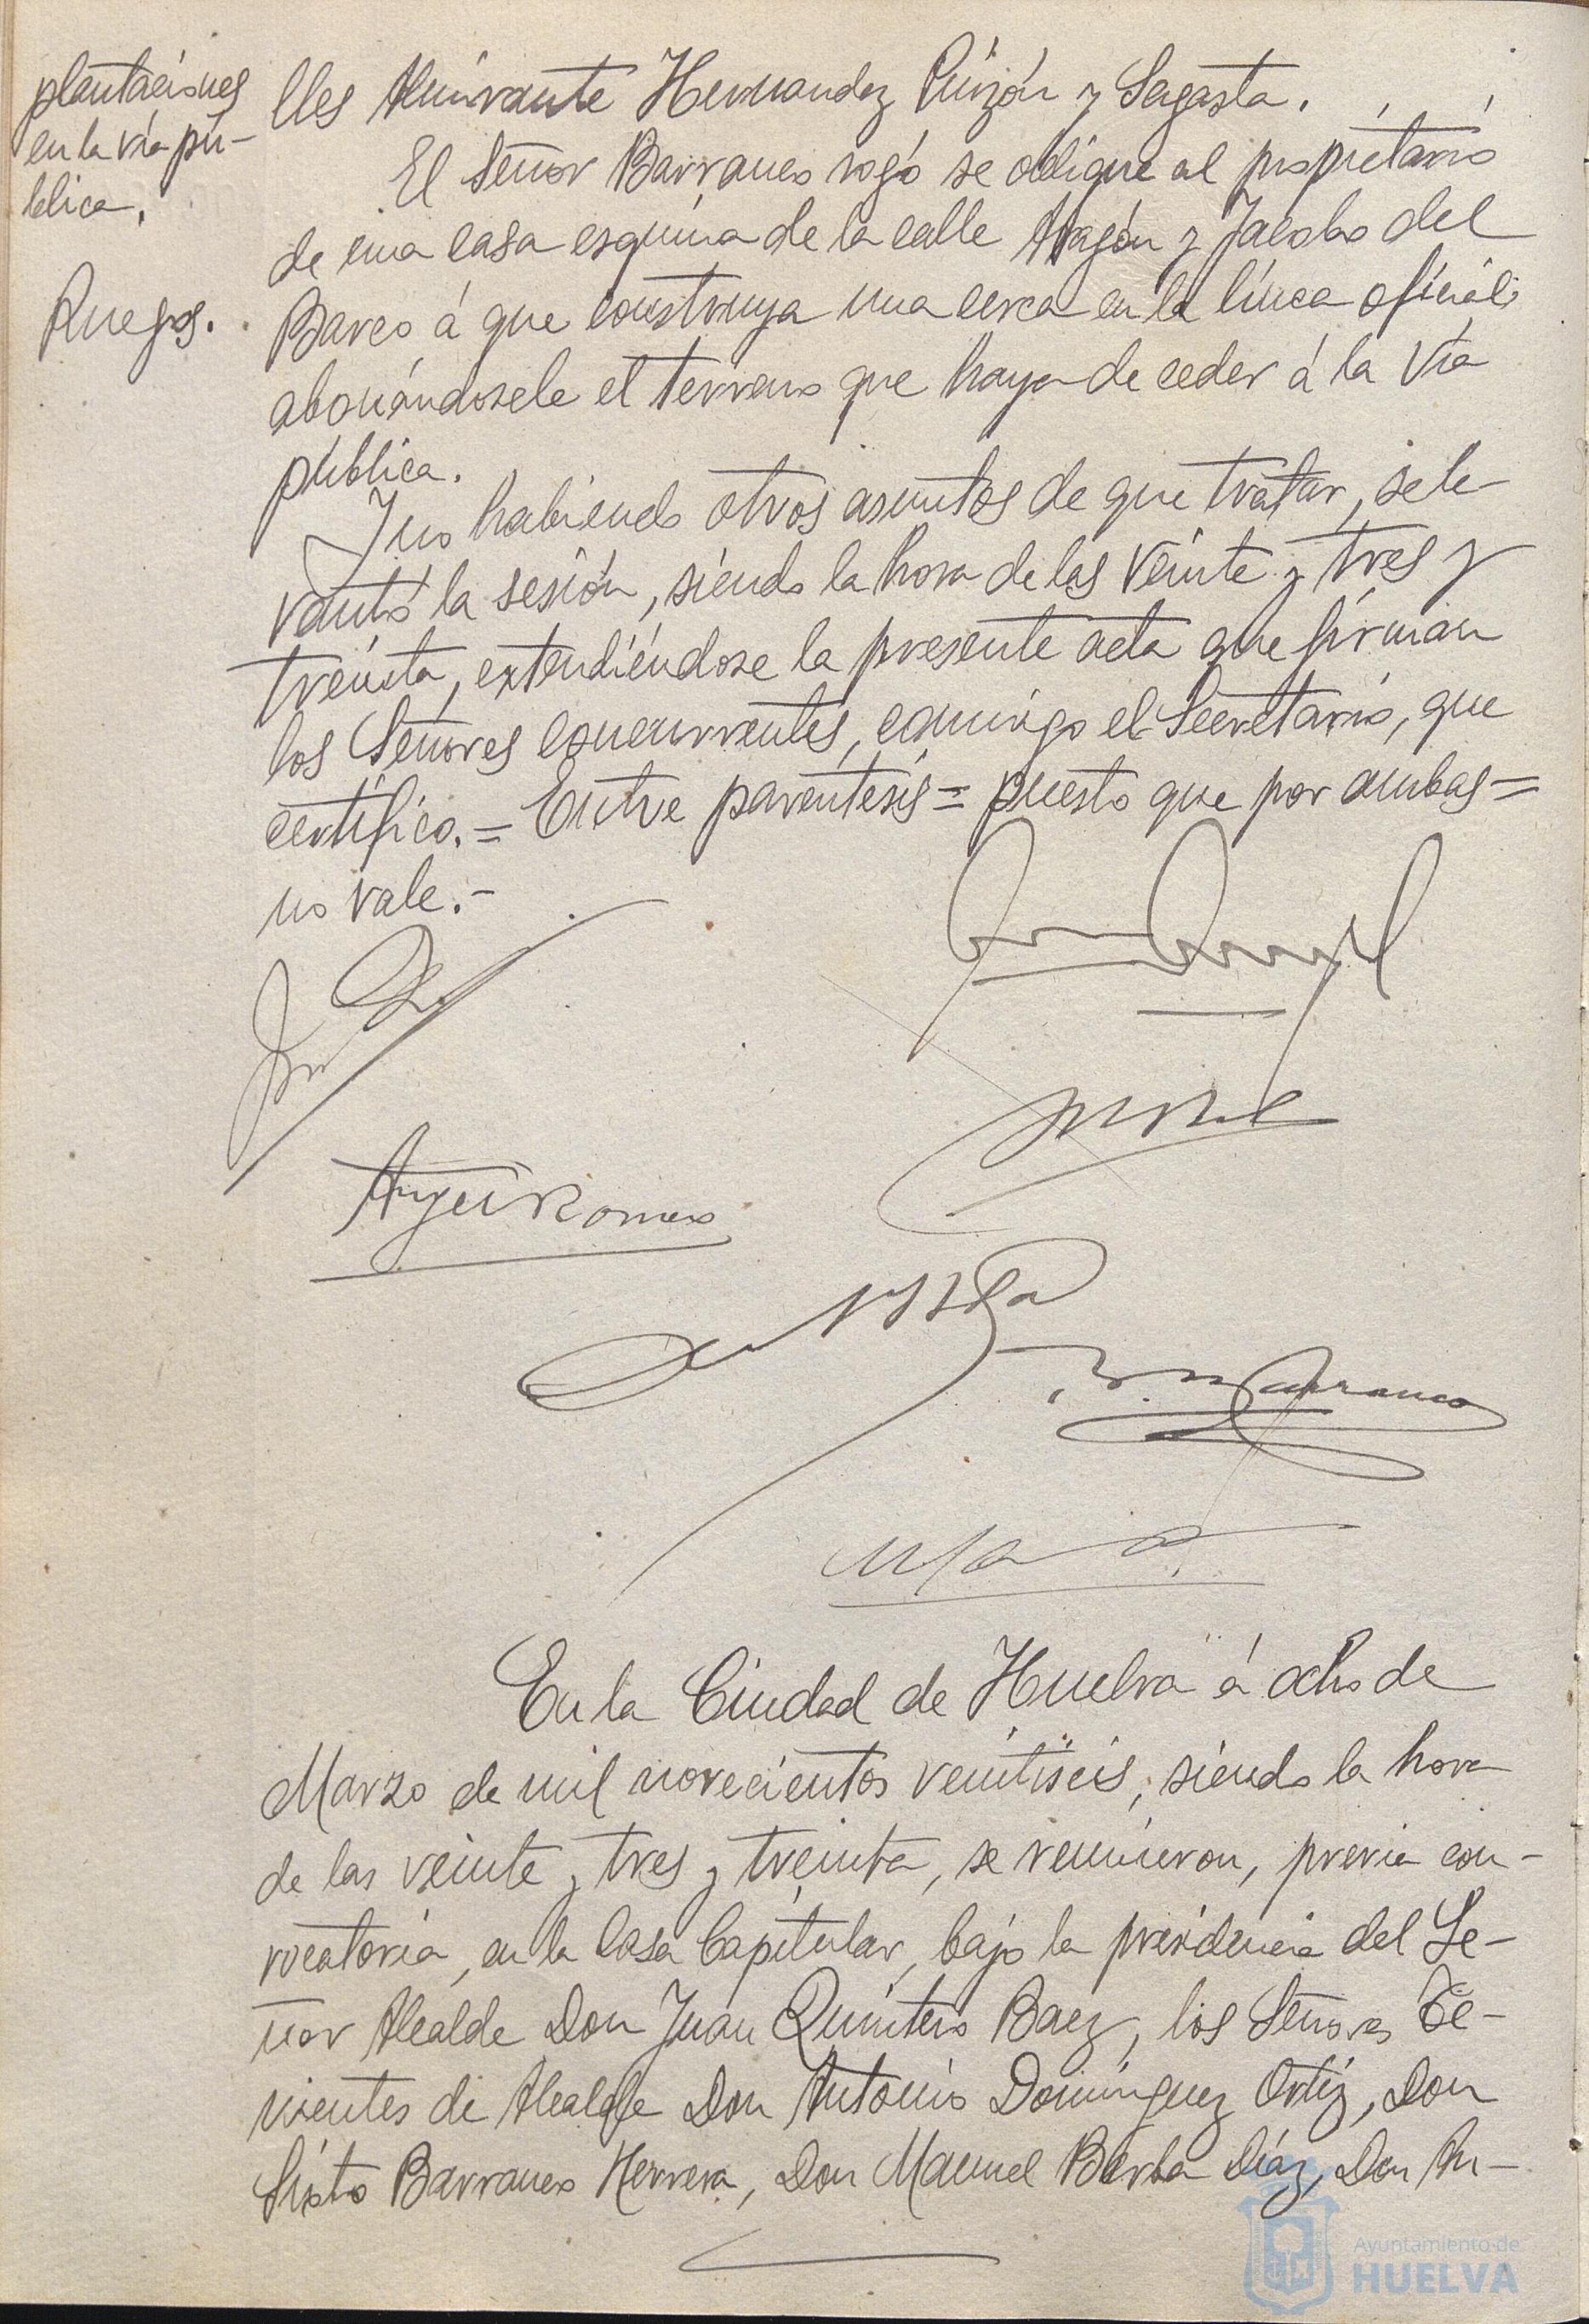 plantaciones
en la vía pú-
blica.
lles Almirante Hernandez Pinzón y Sagasta.
El Señor Barranco rogó se obligue al propietario
de una casa esquina de la calle Aragón y Jacobo del
Ruegos.
Barco á que construya una cerca en la línea oficial
abonándosele el terreno que haya de ceder á la vía
pública.
Y no habiendo otros asuntos de que tratar, se le-
vantó la sesión, siendo la hora de las veinte y tres y
treinta, extendiéndose la presente acta que firman
los Señores concurrentes, conmigo el Secretario, que
certifico.= Entre paréntesis = puesto que por ambas =
no vale.-
Angel Romero
Barranco
En la Ciudad de Huelva á ocho de
Marzo de mil novecientos veintiseis, siendo la hora
de las veinte y tres y treinta, se reunieron, previa con-
vocatoria, en la Casa Capitular, bajo la presidencia del Se-
ñor Alcalde Don Juan Quintero Baez, los Señores Te-
nientes de Alcalde Don Antonio Domínguez Ortiz, Don
Sixto Barranco Herrera, Don Manuel Borba Díaz, Don An-
Ayuntamiento de
HUELVA